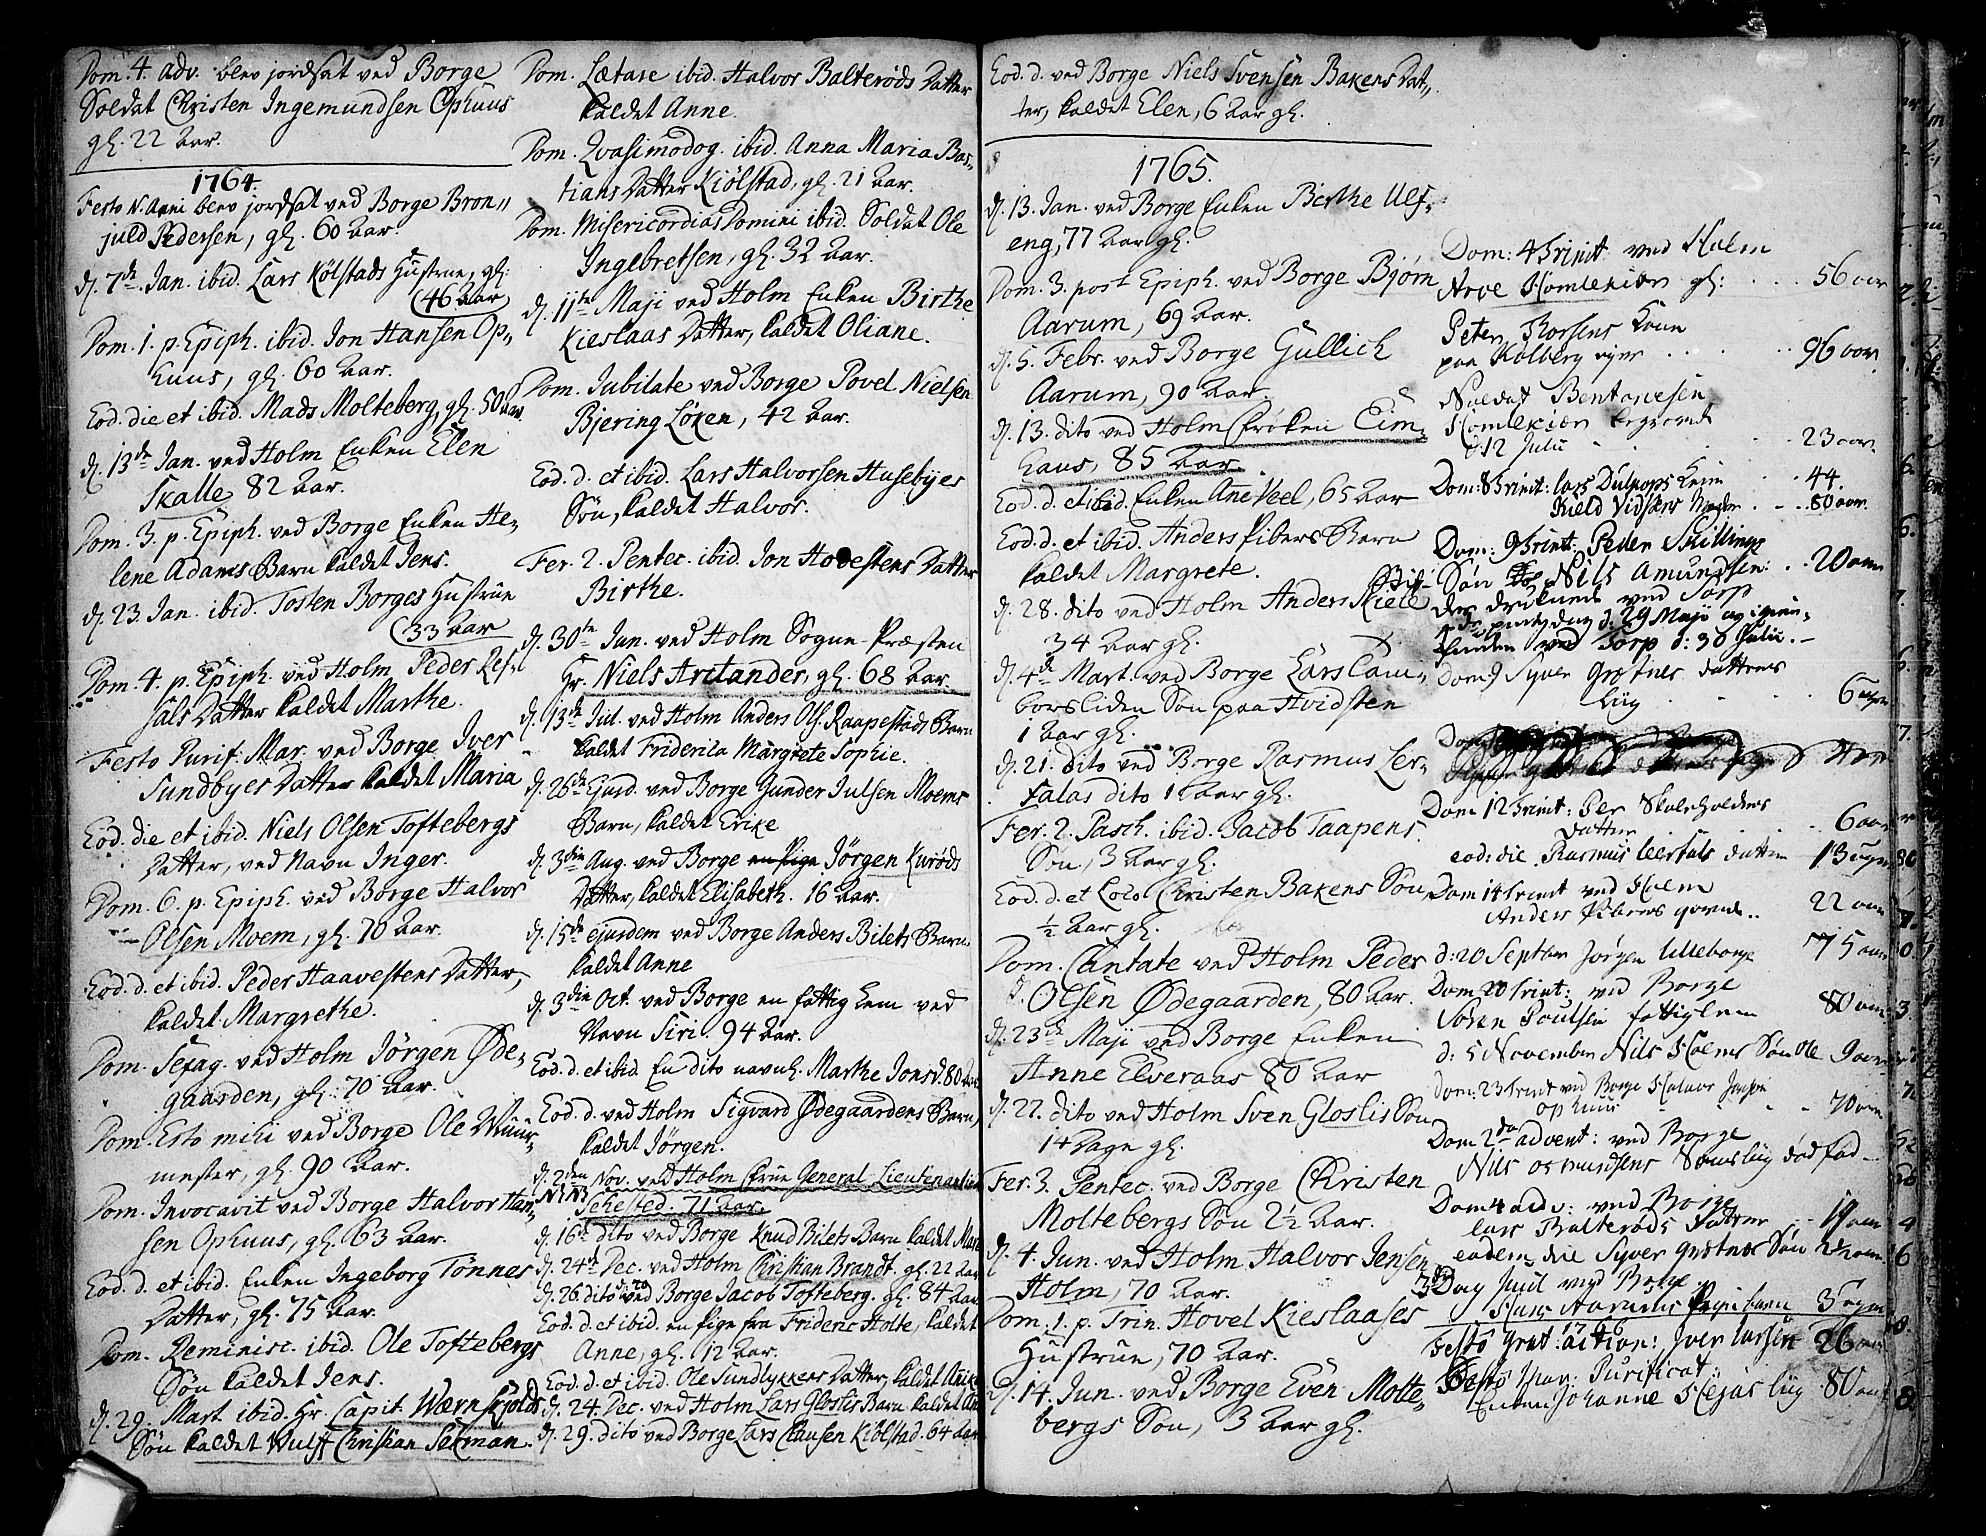 Dom. 4. adv. blev jordsat ved Borge
Soldat Christen Ingemundsen Ophuus
gl. 22 Aar.
1764.
Festo N. Anni blev jordsat ved Borge Bron„
juld Pedersen, gl. 60 Aar.
d. 7de Jan. ibid. Lars Kölstads Hustrue, gl.
46 Aar
Dom. 1. p. Epiph. ibid. Jon Hansen Op„
huus, gl. 60 Aar.
Eod. die et ibid. Mads Molteberg, gl. 50 Aar
d. 13de Jan. ved Holm Enken Elen
Skalle 82 Aar.
Dom. 3. p. Epiph. ved Borge Enken He„
lene Adams Barn kaldet Jens.
d. 23. Jan. ibid. Tosten Borges Hustrue
33 Aar
Dom. 4. p. Epiph. ved Holm Peder Ref„
sals Datter kaldet Marthe.
Festo Purif. Mar. ved Borge Iver
Sundbyes Datter kaldet Maria
Eod. die et ibid. Niels Olsen Toftebergs
Datter, ved Navn Inger.
Dom. 6. p. Epiph. ved Borge Halvor
Olsen Moem, gl. 70 Aar.
Eod. d. et ibid. Peder Haavestens Datter,
kaldet Margrethe.
Dom. Sexag. ved Holm Jörgen Øde„
gaarden, gl. 70 Aar.
Dom. Esto mihi ved Borge Ole Muur„
mester, gl. 90 Aar.
Dom. Invocavit ved Borge Halvor Han„
sen Ophuus, gl. 63 Aar.
Eod. d. et ibid. Enken Ingeborg Tönnes
Datter, gl. 75 Aar.
Dom. Reminisc. ibid. Ole Toftebergs
Søn kaldet Jens.
d. 29. Mart. ibid. Hr. Capit. Wærnskjolds
Søn kaldet Wulff Christian Herman.
Dom. Lætare ibid. Halvor Balterøds Datter
kaldet Anne.
Dom. Qvasimodog. ibid. Anna Maria Bas„
tians Datter Kiölstad, gl. 21 Aar.
Dom. Misericordias Domini ibid. Soldat Ole
Ingebretsen, gl. 32 Aar.
d. 11te Maji ved Holm Enken Birthe
Kieslaas Datter, kaldet Oliane.
Dom. Iubilate ved Borge Povel Nielsen
Bjering Löken, 42 Aar.
Eod. d. et ibid. Lars Halvorsen Husebÿes
Søn, kaldet Halvor.
Fer. 2. Pentec. ibid. Jon Hovestens Datter
Birthe.
d. 30te Jun. ved Holm Sogne-Præsten
Hr. Niels Arctander, gl. 68 Aar.
d. 13de Jul. ved Holm Anders Ols. Raapestads Barn
kaldet Friderica Margrete Sophie.
d. 26de Ejusd. ved Borge Gunder Julsen Moems
Barn, kaldet Erike
d. 3die Aug. ved Borge en Pige Jörgen Kurøds
Datter, kaldet Elisabeth. 16 Aar.
d. 15de ejusdem ved Borge Anders Bilets Barn
kaldet Anne
d. 3die Oct. ved Borge en fattig Lem ved
Navn Siri. 94 Aar.
Eod. d. et ibid. En dito navnl. Marthe Jonsd. 80 Aar
Eod. d. ved Holm Sigvard Ødegaardens Barn,
kaldet Jörgen.
d. 2den Nov. ved Holm Frue General Lieutinantinde
Sehested. 71 Aar.
d. 16de dito ved Borge Knud Bilets Barn kaldet
d. 24de Dec. ved Holm Christian Brandt. gl. 22 Aar
d. 26 dito ved Borge Jacob Tofteberg. gl. 84 Aar
Eod. d. et ibid. en Pige fra Frideric Holte, kaldet
Anne, gl. 12 Aar.
Eod. d. et ibid. Ole Sundlykkers Datter, kaldet
d. 24. Dec. ved Holm Lars Gloslis Barn kaldet
d. 29. dito ved Borge Lars Clausen Kiölstad. 64 Aar
Eod. d. ved Borge Niels Svensen Bakens Dat„
ter, kaldet Elen, 6 Aar gl.
1765.
d. 13. Jan. ved Borge Enken Birthe Ulf„
eng, 77 Aar gl.
Dom. 3. post Epiph. ved Borge Bjørn
Aarum, 69 Aar.
d. 5. Febr. ved Borge Gullich
Aarum, 90 Aar.
d. 13. dito ved Holm Frøken Eim„
haus, 85 Aar.
Eod. d. et ibid. Enken Ane Veel, 65 Aar
Eod. d. et ibid. Anders Pibers Barn
kaldet Margrete.
d. 28. dito ved Holm Anders Kiele
34 Aar gl.
d. 4de Mart. ved Borge Lars Cam„
borsliden Søn paa Hvidsten
1 Aar gl.
d. 21. dito ved Borge Rasmus Ler„
falas dito 1 Aar gl.
Fer. 2. Pasch. ibid. Jacob Taapens
Søn, 3 Aar gl.
Eod. d. et Loco Christen Bakens Søn
½ Aar gl.
Dom. Cantate ved Holm Peder
Olsen Ødegaarden, 80 Aar.
d. 23de Maji ved Borge Enken
Anne Elveraas 80 Aar
d. 27. dito ved Holm Sven Gloslis Søn
14 Dage gl.
Fer. 3. Pentec. ved Borge Christen
Moltebergs Søn 2½ Aar.
d. 4. Jun. ved Holm Halvor Jensen
Holm, 70 Aar.
Dom. 1. p. Trin. Hovel Kieslaases
Hustrue, 70 Aar.
d. 14. Jun. ved Borge Even Molte„
bergs Søn, 3 Aar gl.
Dom: 4 Trinit: ved Holm
Arve Homlekiær gl: . . . 56 aar
Peter Thorsens Kone
paa Kolberg 96 aar
Soldat Bent
Homlekiær begravet
d. 12 Julii 23 aar
Dom: 8 Trinit: Lars 44.
Kield 80 aar.
Dom: 9 Trinit: Peder Skilling
Søn Nils Amundsen: . . 20 aar
der druknede ved Torp
d. 29 Maji og igien„
funden ved Torp d: 30 Julii. –
Dom 9 Syver Grøtnes datters
Liig 6
Dom 12 Trinit: Per Skoleholders
Datter 6 aar
eod: die Rasmus Leerfals datter 13 uger
Dom 14 Trinit ved Holm
Anders Pibers 22
d: 20 Septber Jørgen Lilleborge 75 aar
Dom 20 Trint: ved Borge
Søren Poulsen fattiglem 80 aar
d: 5 November Nils Holms Søn Ole 9 aar
Dom: 23 Trinit ved Borge Halvor
ophuus 70 aar
Dom 2da advent: ved Borge
Nils Osmundsens Søns liig død fød
Dom 4 adv: ved Borge
Lars Balterøds Datter
eadem die Syver grøtnes Søn 2½ aar
3die Dag Juul ved Borge
Hans Aarums Pigebarn 3
1766
Festo Grat: action: Iver Larsen 26
Festo Mar: Purificat:
Enken Johanne liig 80 aar